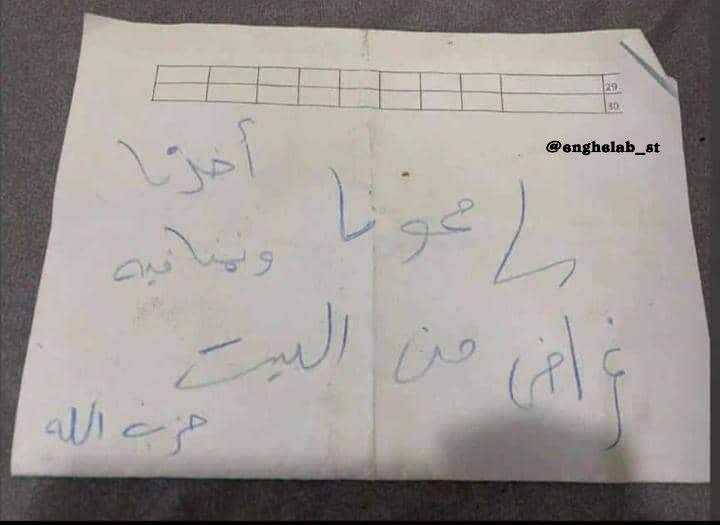 29
30
@enghelab_st
أخذنا
سامحونا
ونمنا فيه
غراض من البيت
حزب الله